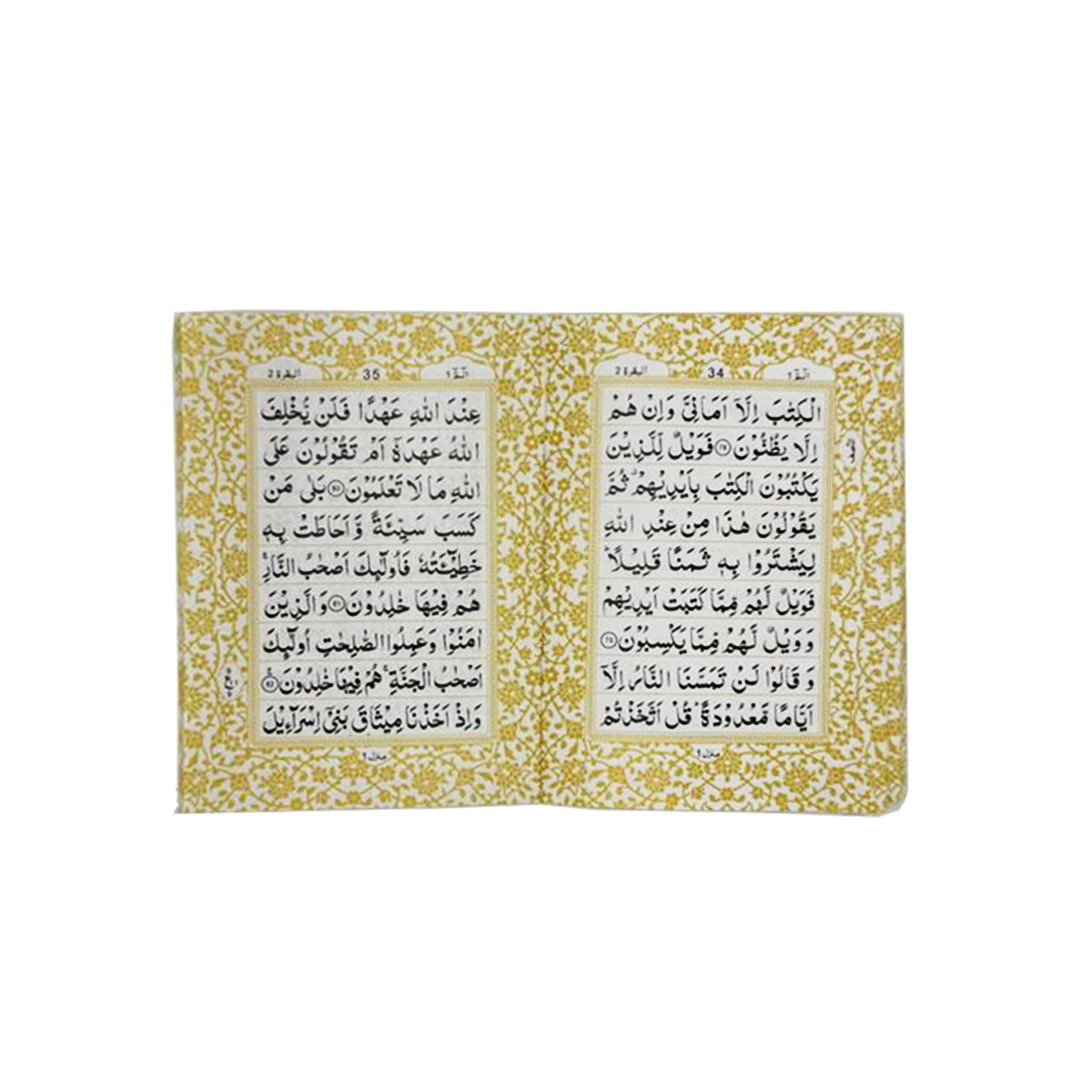 البقرة ٢ 34 الٓمّٓ ١
الْكِتٰبَ اِلَّاۤ اَمَانِیَّ وَاِنْ هُمْ
اِلَّا یَظُنُّوْنَ ﴿٧٨﴾ فَوَیْلٌ لِّلَّذِیْنَ
یَكْتُبُوْنَ الْكِتٰبَ بِاَیْدِیْهِمْ ۗ ثُمَّ
یَقُوْلُوْنَ هٰذَا مِنْ عِنْدِ اللّٰهِ
لِیَشْتَرُوْا بِهٖ ثَمَنًا قَلِیْلًا ؕ
فَوَیْلٌ لَّهُمْ مِّمَّا كَتَبَتْ اَیْدِیْهِمْ
وَ وَیْلٌ لَّهُمْ مِّمَّا یَكْسِبُوْنَ ﴿٧٩﴾
وَ قَالُوْا لَنْ تَمَسَّنَا النَّارُ اِلَّاۤ
اَیَّامًا مَّعْدُوْدَةً ؕ قُلْ اَتَّخَذْتُمْ
منزل ١
البقرة ٢ 35 الٓمّٓ ١
عِنْدَ اللّٰهِ عَهْدًا فَلَنْ یُّخْلِفَ
اللّٰهُ عَهْدَهٗۤ اَمْ تَقُوْلُوْنَ عَلَی
اللّٰهِ مَا لَا تَعْلَمُوْنَ ﴿٨٠﴾ بَلٰی مَنْ
كَسَبَ سَیِّئَةً وَّ اَحَاطَتْ بِهٖ
خَطِیْٓـَٔتُهٗ فَاُولٰٓئِكَ اَصْحٰبُ النَّارِ ۚ
هُمْ فِیْهَا خٰلِدُوْنَ ﴿٨١﴾ وَالَّذِیْنَ
اٰمَنُوْا وَعَمِلُوا الصّٰلِحٰتِ اُولٰٓئِكَ
اَصْحٰبُ الْجَنَّةِ ۚ هُمْ فِیْهَا خٰلِدُوْنَ ﴿٨٢﴾
وَاِذْ اَخَذْنَا مِیْثَاقَ بَنِیْۤ اِسْرَآءِیْلَ
منزل ١